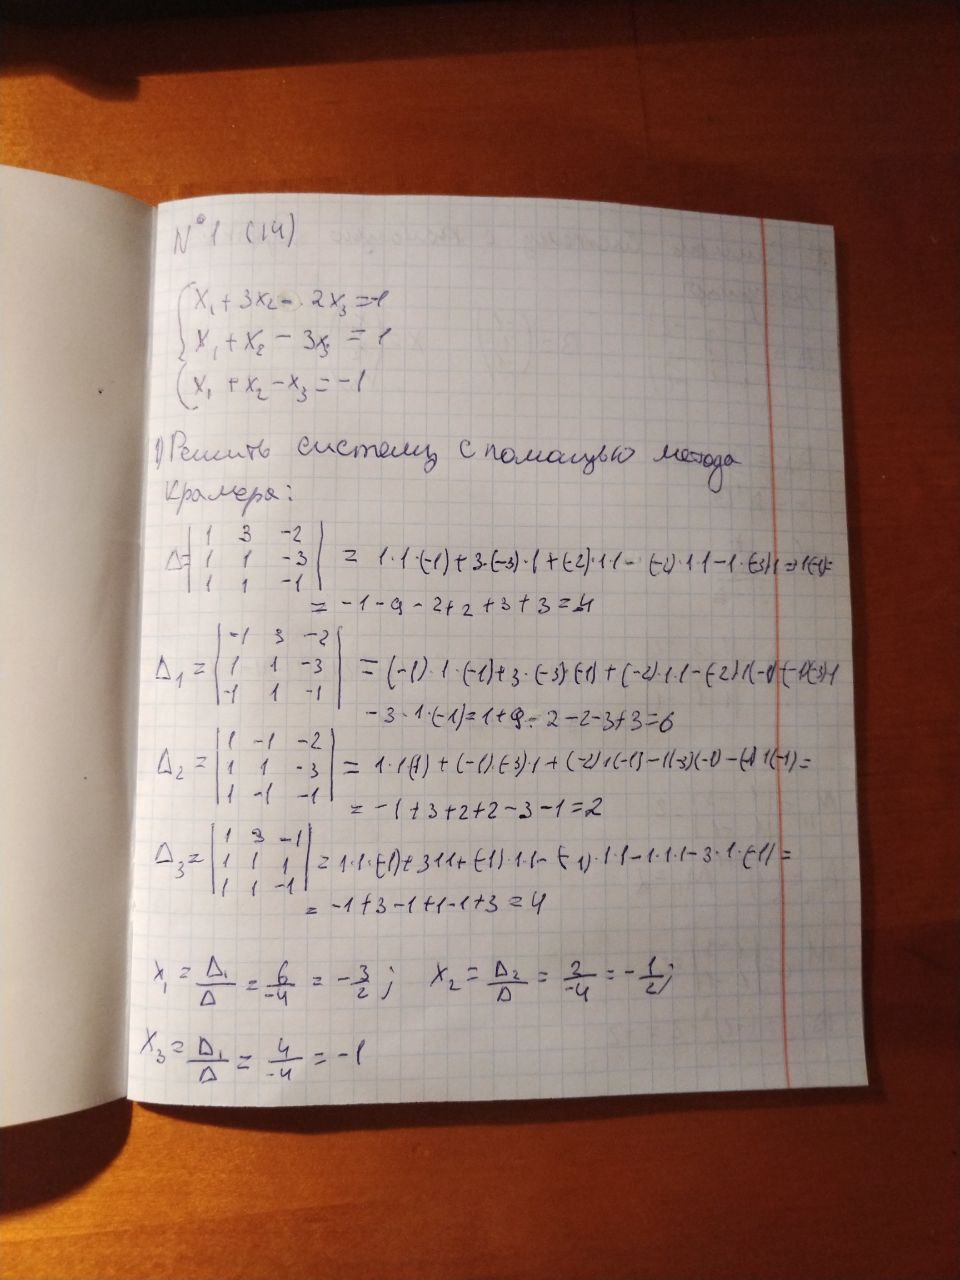 N°1 (14)
x₁ + 3x₂ - 2x₃ = -1
x₁ + x₂ - 3x₃ = 1
x₁ + x₂ - x₃ = -1
1) Решить систему с помощью метода
Крамера:
1 3 -2
Δ= 1 1 -3 = 1·1·(-1)+3·(-3)·1+(-2)·1·1-(-2)·1·1-1·(-3)·1
1 1 -1
= -1-9-2+2+3+3=-4
-1 3 -2
Δ₁ = 1 1 -3 = (-1)·1·(-1)+3·(-3)(-1)+(-2)·1·1-(-2)1(-1)-(-1)(-3)1
-1 1 -1
-3·1·(-1)=1+9-2-2-3+3=6
1 -1 -2
Δ₂ = 1 1 -3 = 1·1(-1)+(-1)·(-3)·1+(-2)1(-1)-1(-3)(-1)-(-1)1(-1)=
1 -1 -1
= -1+3+2+2-3-1=2
1 3 -1
Δ₃= 1 1 1 = 1·1·(-1)+311+(-1)·1·1-(-1)·1·1-1·1·1-3·1·(-1)=
1 1 -1
= -1+3-1+1-1+3=4
x₁ = Δ₁/Δ = 6/-4 = -3/2; x₂ = Δ₂/Δ = 2/-4 = -1/2;
x₃ = Δ₁/Δ = 4/-4 = -1